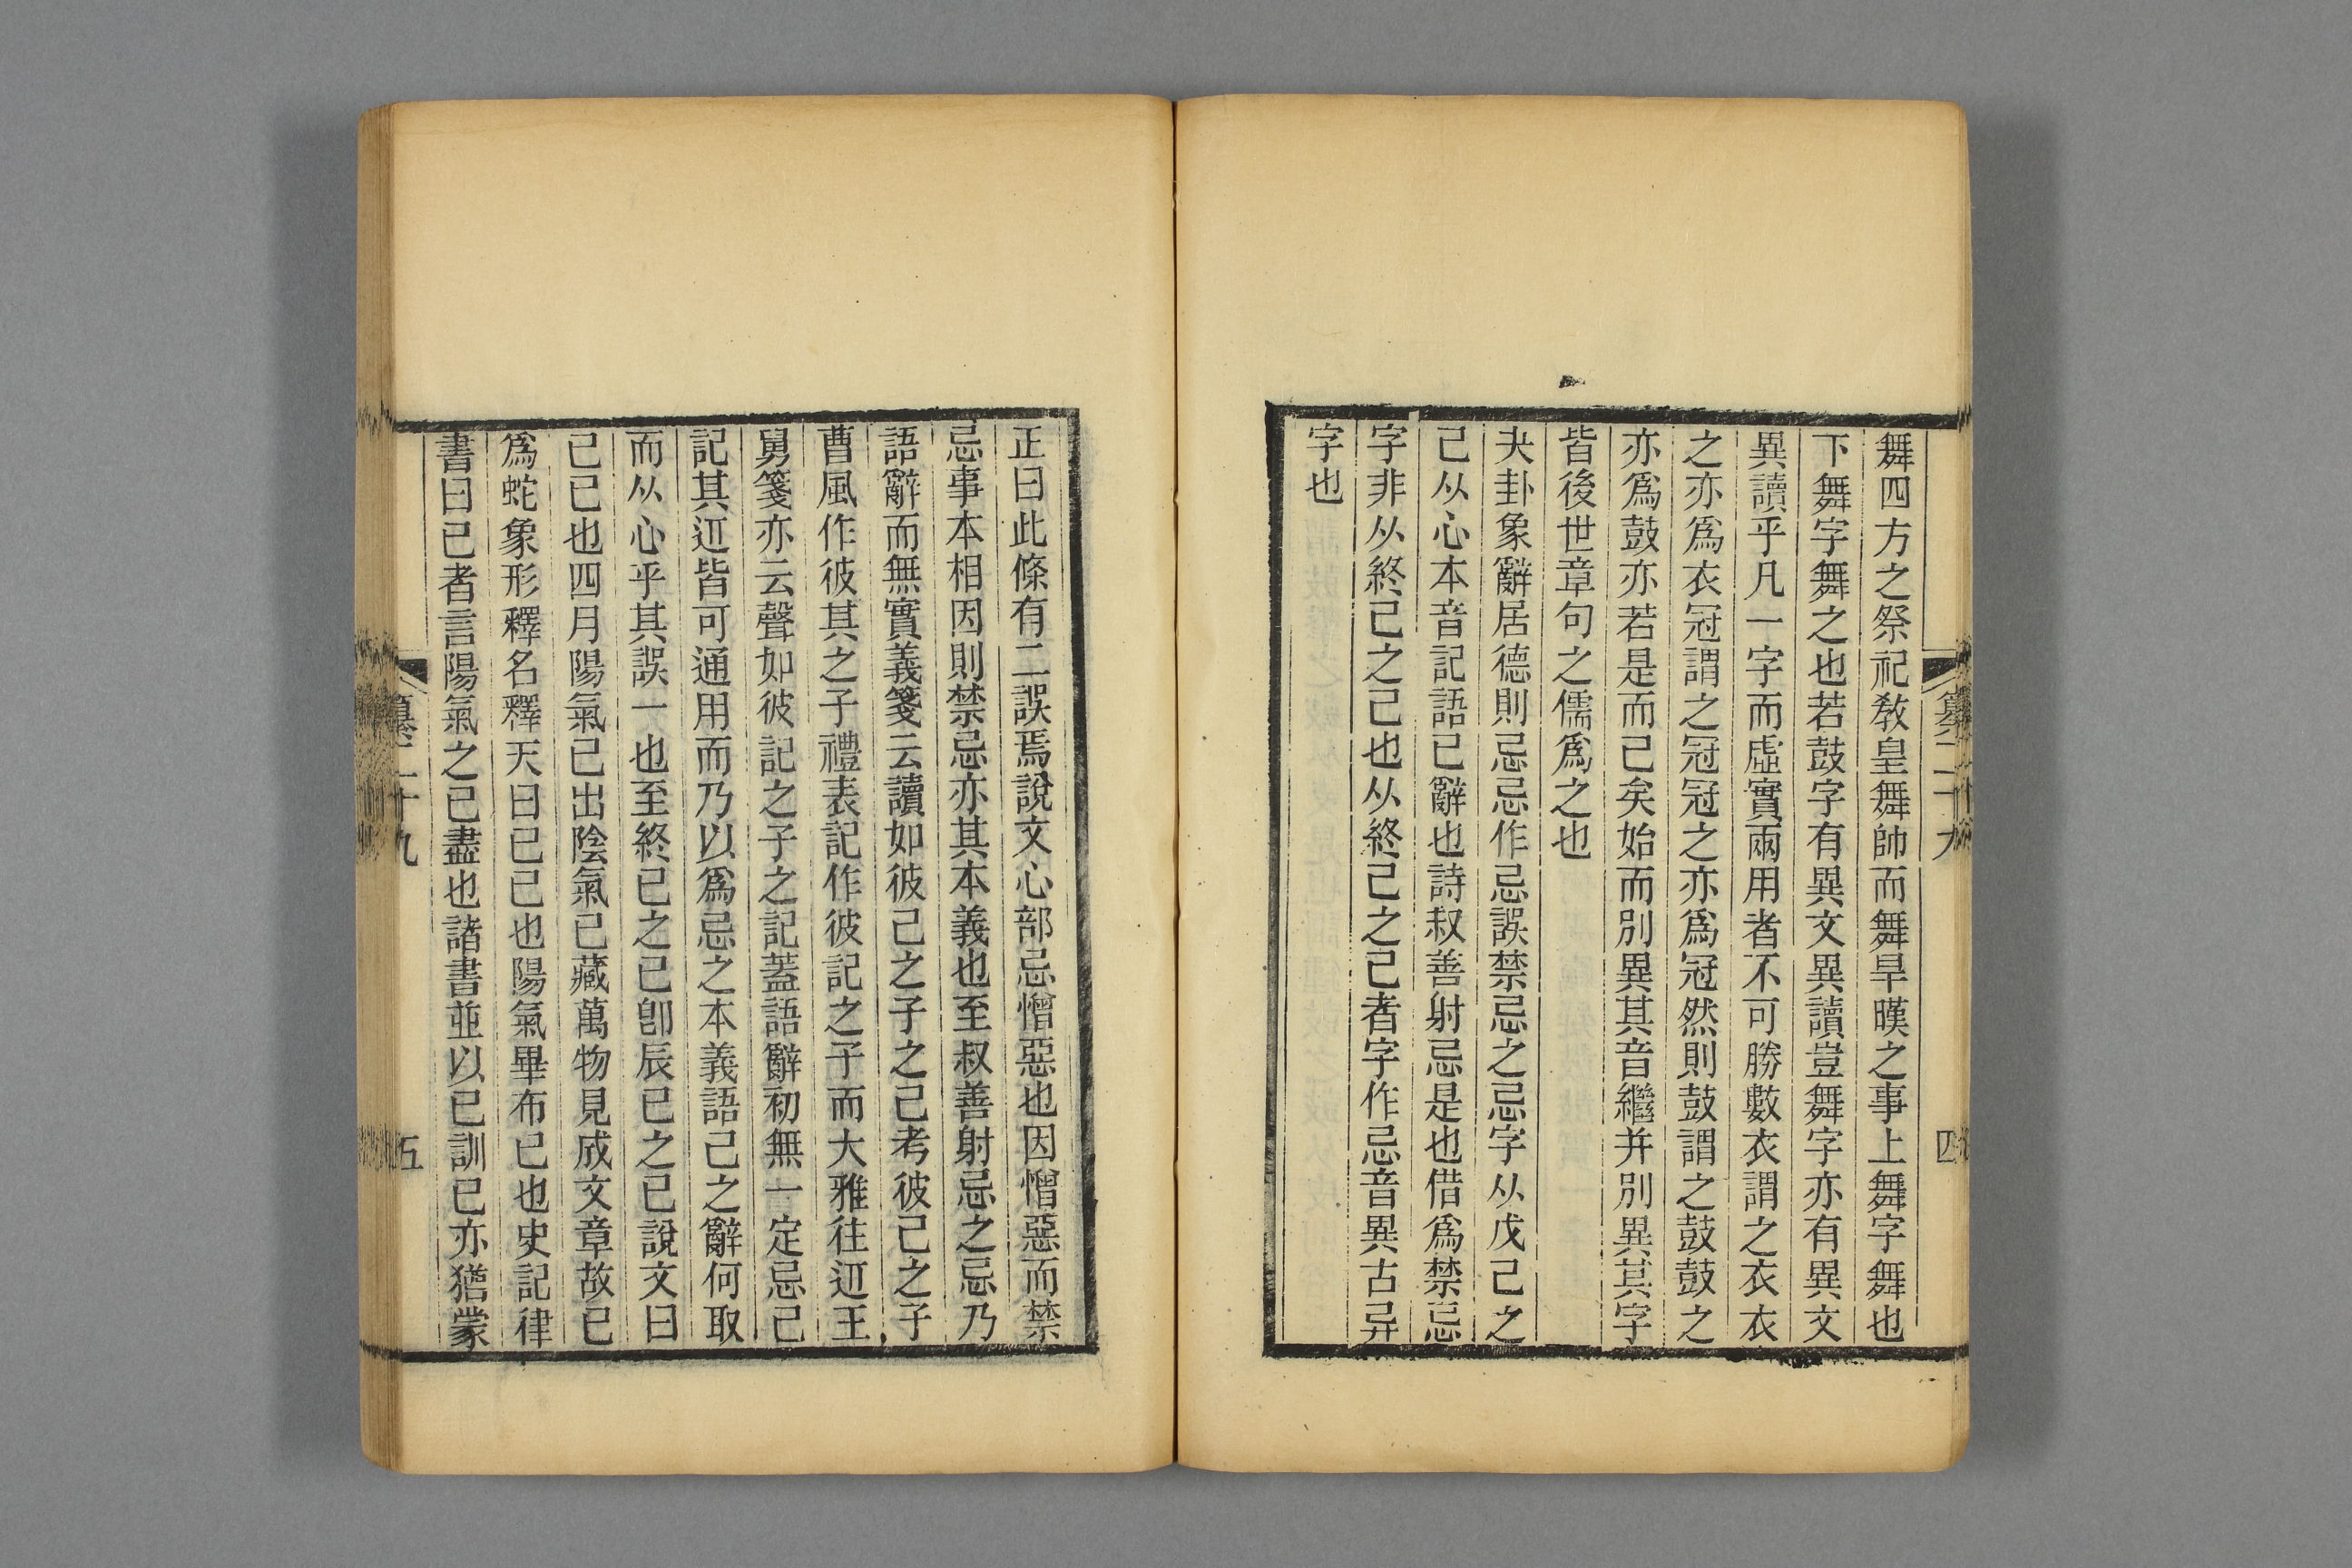 舞四方之祭祀敎皇舞帥而舞旱暵之事上舞字舞也
下舞字舞之也若鼓字有異文異讀豈舞字亦有異文
異讀乎凡一字而虛實兩用者不可勝數衣謂之衣衣
之亦爲衣冠謂之冠冠之亦爲冠然則鼓謂之鼓鼓之
亦爲鼓亦若是而已矣始而別異其音繼并別異其字
皆後世章句之儒爲之也
夬卦象辭居德則忌忌作忌誤禁忌之忌字从戊己之
己从心本音記語已辭也詩叔善射忌是也借爲禁忌
字非从終已之已也从終已之已者字作忌音異古㠱
字也
四
正曰此條有二誤焉說文心部忌憎惡也因憎惡而禁
忌事本相因則禁忌亦其本義也至叔善射忌之忌乃
語辭而無實義箋云讀如彼己之子之己考彼己之子
曹風作彼其之子禮表記作彼記之子而大雅往䢋王
舅箋亦云聲如彼記之子之記蓋語辭初無一定忌己
記其䢋皆可通用而乃以爲忌之本義語已之辭何取
而从心乎其誤一也至終已之已卽辰巳之巳說文曰
巳已也四月陽氣已出陰氣已藏萬物見成文章故巳
爲蛇象形釋名釋天曰巳已也陽氣畢布已也史記律
書曰巳者言陽氣之已盡也諸書並以已訓巳亦猶蒙
纂二十九
五